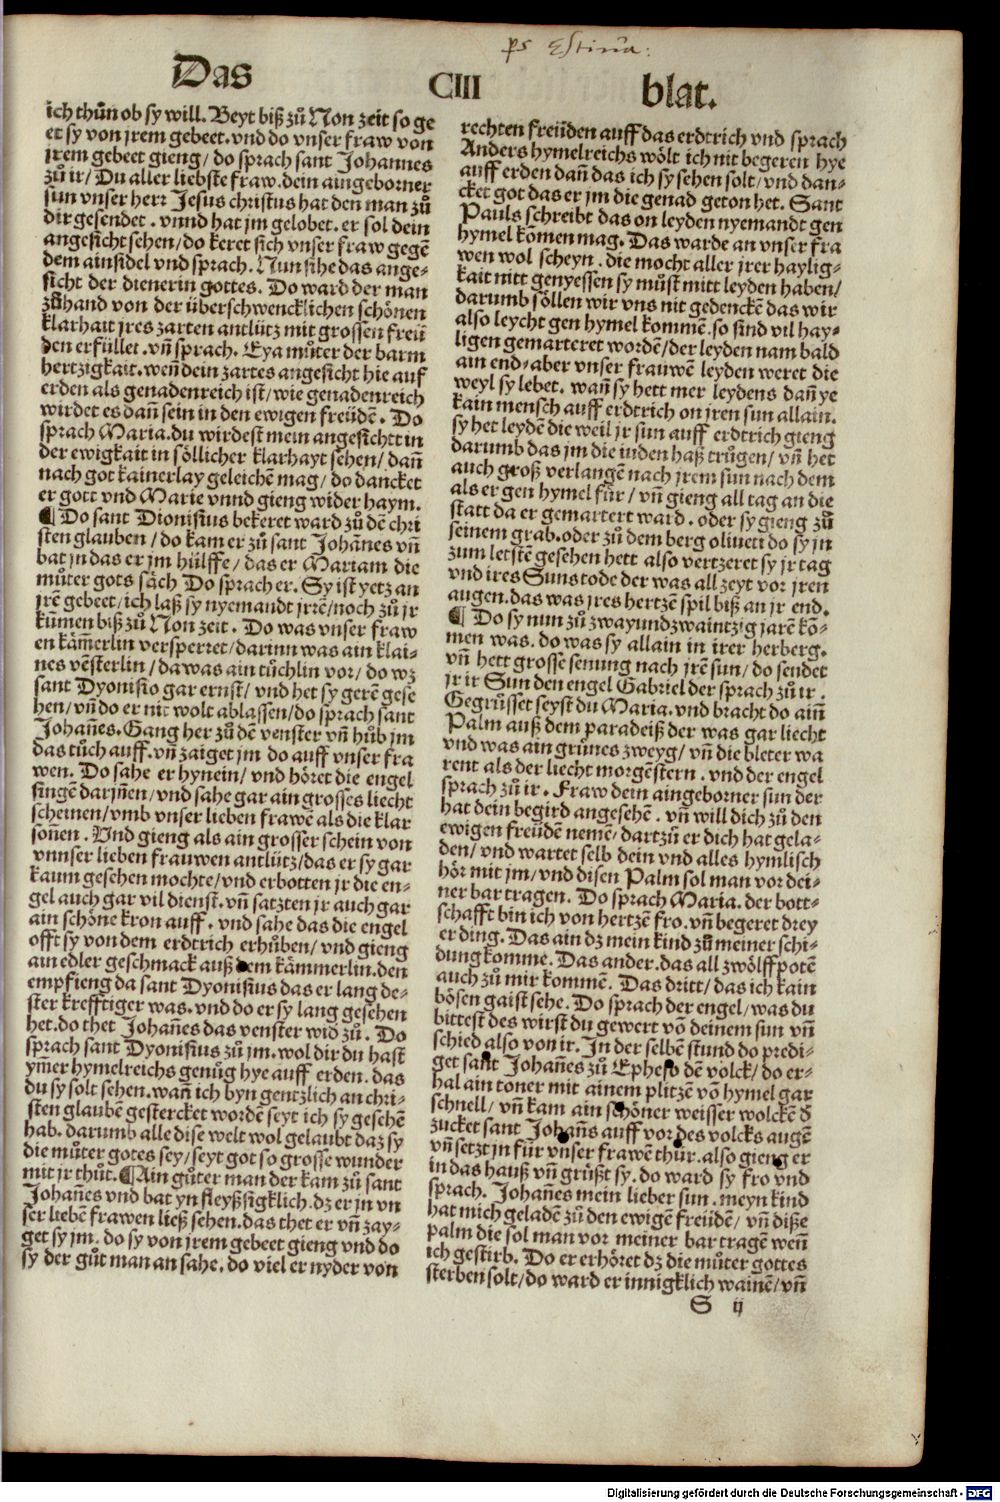 Das CIII blat.
ich thůn ob sy will. Beyt biß zů Non zeit so ge
et sy von jrem gebeet. vnd do vnser fraw von
jrem gebeet gieng / do sprach sant Johannes
zů ir / Du aller liebste fraw. dein aingeborner
sun vnser herr Jesus christus hat den man zů
dir gesendet . vnnd hat jm gelobet. er sol dein
angesicht sehen / do keret sich vnser fraw gegē
dem ainsidel vnd sprach. Nun sihe das ange⸗
sicht der dienerin gottes. Do ward der man
zůhand von der überschwencklichen schönen
klarhait jres zarten antlütz mit grossen freü
den erfüllet . vñ sprach. Eya můter der barm
hertzigkait. weñ dein zartes angesicht hie auf
erden als genadenreich ist / wie genadenreich
wirdet es dañ sein in den ewigen freüdē . Do
sprach Maria. du wirdest mein angesichtt in
der ewigkait in söllicher klarhayt sehen / dañ
nach got kainerlay geleichē mag / do dancket
er gott vnd Marie vnnd gieng wider haym.
¶ Do sant Dionisius bekeret ward zů dē chri
sten glauben / do kam er zů sant Johānes vñ
bat jn das er jm hülffe / das er Mariam die
můter gots säch Do sprach er. Sy ist yetz an
jrē gebeet / ich laß sy nyemandt jrrē / noch zů jr
kumen biß zů Non zeit . Do was vnser fraw
en kām̄erlin versperret / darinn was ain klai⸗
nes vēsterlin / da was ain tůchlin vor / do wz
sant Dyonisio gar ernst / vnd het sy gerē gese
hen / vñ do er nit wolt ablassen / do sprach sant
Johañes. Gang her zů dē venster vñ hůb jm
das tůch auff. vñ zaiget jm do auff vnser fra
wen. Do sahe er hynein / vnd höret die engel
singē darjñen / vnd sahe gar ain grosses liecht
scheinen / vmb vnser lieben frawē als die klar
soñen . Vnd gieng als ain grosser schein von
vnnser lieben frauwen antlütz / das er sy gar
kaum gesehen mochte / vnd erbotten jr die en⸗
gel auch gar vil dienst. vñ satzten jr auch gar
ain schöne kron auff . vnd sahe das die engel
offt sy von dem erdtrich erhůben / vnd gieng
ain edler geschmack auß dem kämmerlin. den
empfieng da sant Dyonisius das er lang de⸗
ster krefftiger was. vnd do er sy lang gesehen
het. do thet Johañes das venster wid zů . Do
sprach sant Dyonisius zů jm. wol dir du hast
ym̄er hymelreichs genůg hye auff erden. das
du sy solt sehen. wañ ich byn gentzlich an chri⸗
sten glaubē gestercket wordē seyt ich sy gesehē
hab. darumb alle dise welt wol gelaubt daz sy
die můter gotes sey / seyt got so grosse wunder
mit jr thůt. ¶ Ain gůter man der kam zů sant
Johañes vnd bat yn fleyßsigklich. dz er jn vn
ser liebē frawen ließ sehen. das thet er vñ zay⸗
get sy jm. do sy von jrem gebeet gieng vnd do
sy der gůt man an sahe. do viel er nyder von
rechten freüden auff das erdtrich vnd sprach
Anders hymelreichs wölt ich nit begeren hye
auff erden dañ das ich sy sehen solt / vnd dan⸗
cket got das er jm die genad geton het. Sant
Pauls schreibt das on leyden nyemandt gen
hymel kōmen mag. Das warde an vnser fra
wen wol scheyn . die mocht aller jrer haylig⸗
kait nitt genyessen sy můst mitt leyden haben /
darumb söllen wir vns nit gedenckē das wir
also leycht gen hymel kommē. so sind vil hay⸗
ligen gemarteret wordē / der leyden nam bald
ain end⸗aber vnser frauwē leyden weret die
weyl sy lebet. wañ sy hett mer leydens dañ ye
kain mensch auff erdtrich on jren sun allain.
sy het leydē die weil jr sun auff erdtrich gieng
darumb das jm die iuden haß trůgen / vñ het
auch groß verlangē nach jrem sun nach dem
als er gen hymel fůr / vñ gieng all tag an die
statt da er gemartert ward . oder sy gieng zů
seinem grab. oder zů dem berg oliueti do sy jn
zum letstē gesehen hett also vertzeret sy jr tag
vnd ires Suns tode der was all zeyt vor jren
augen. das was jres hertzē spil biß an jr end.
¶ Do sy nun zů zwayundzwaintzig jarē kō⸗
men was. do was sy allain in irer herberg.
vñ hett grosse senung nach jrē sun / do sendet
jr ir Sun den engel Gabriel der sprach zů ir .
Gegrůsset seyst du Maria. vnd bracht do ainñ
Palm auß dem paradeiß der was gar liecht
vnd was ain grůnes zweyg / vñ die bleter wa
rent als der liecht morgēstern . vnd der engel
sprach zů ir . Fraw dein aingeborner sun der
hat dein begird angesehē . vñ will dich zů den
ewigen freüdē nemē / dartzů er dich hat gela⸗
den / vnd wartet selb dein vnd alles hymlisch
hör mit jm / vnd disen Palm sol man vor dei⸗
ner bar tragen. Do sprach Maria. der bott⸗
schafft bin ich von hertzē fro. vñ begeret drey
er ding. Das ain dz mein kind zů meiner schi⸗
dung komme. Das ander. das all zwölffpotē
auch zů mir kommē. Das dritt / das ich kain
bösen gaist sehe. Do sprach der engel / was du
bittest des wirst du gewert vō deinem sun vñ
schied also von ir. In der selbē stund do predi⸗
get sant Johañes zů Epheso dē volck / do er⸗
hal ain toner mit ainem plitzē vō hymel gar
schnell / vñ kam ain schöner weisser wolckē đ
zucket sant Johañs auff vor des volcks augē
vñ setzt jn für vnser frawē thür. also gieng er
in das hauß vñ grůßt sy. do ward sy fro vnd
sprach. Johañes mein lieber sun . meyn kind
hat mich geladē zů den ewigē freüdē / vñ diße
palm die sol man vor meiner bar tragē weñ
ich gestirb. Do er erhöret dz die můter gottes
sterben solt / do ward er innigklich wainē / vñ
S ij
Digitalisierung gefördert durch die Deutsche Forschungsgemeinschaft - DFG